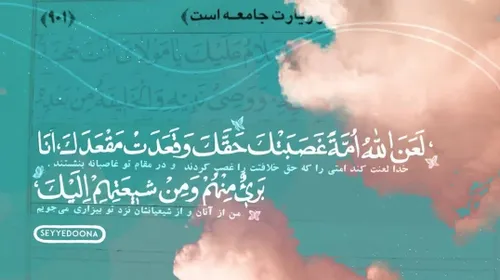 ﴿۹۰۱﴾ زیارت جامعه است
لَعَنَ اللهُ اُمَّةً غَصَبَتْكَ حَقَّكَ وَقَعَدَتْ مَقْعَدَكَ، اَنَا
خدا لعنت کند امتی را که حق خلافتت را غصب کردند و در مقام تو غاصبانه بنشستند .
بَرِيٌ مِنْهُمْ وَمِنْ شِيعَتِهِمْ اِلَيْكَ،
من از آنان و از شیعیانشان نزد تو بیزاری می‌جویم
SEYYEDOONA